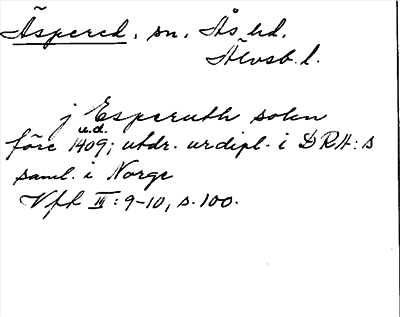 Äspered, sn, Ås hd.
Älvsb. l.
j Esperuth solen
u.d.
före 1409; utdr. ur dipl. i DRA:s
saml. i Norge
Vft III: 9-10, s. 100.